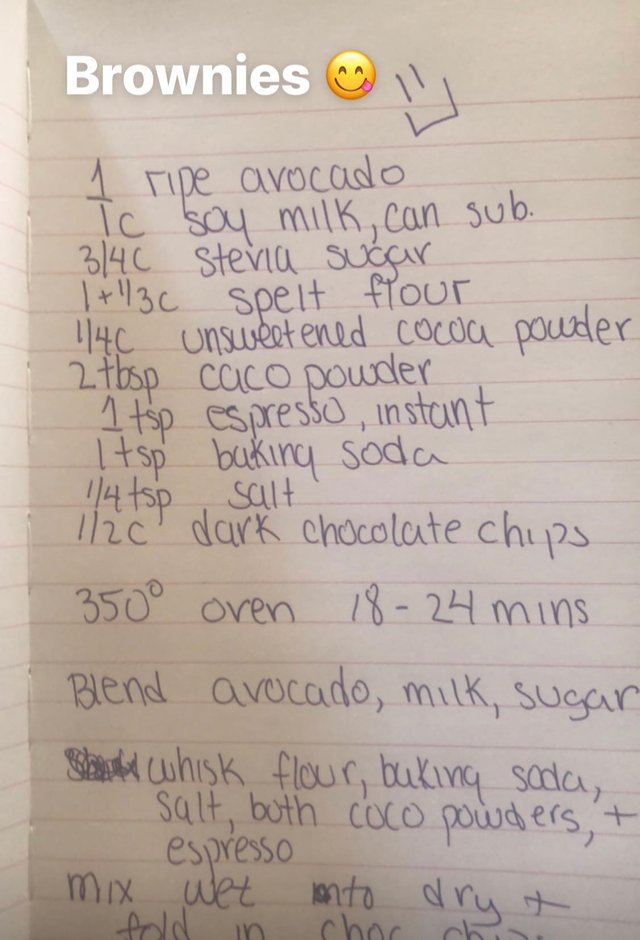 Brownies 😋
1 ripe avocado
1c soy milk, can sub.
3/4c stevia sugar
1+1/3c spelt flour
1/4c unsweetened cocoa powder
2tbsp caco powder
1 tsp espresso, instant
1 tsp baking soda
1/4 tsp salt
1/2c dark chocolate chips
350° oven 18-24 mins
Blend avocado, milk, sugar
whisk flour, baking soda,
salt, both coco powders, +
espresso
mix wet into dry +
fold in choc chips